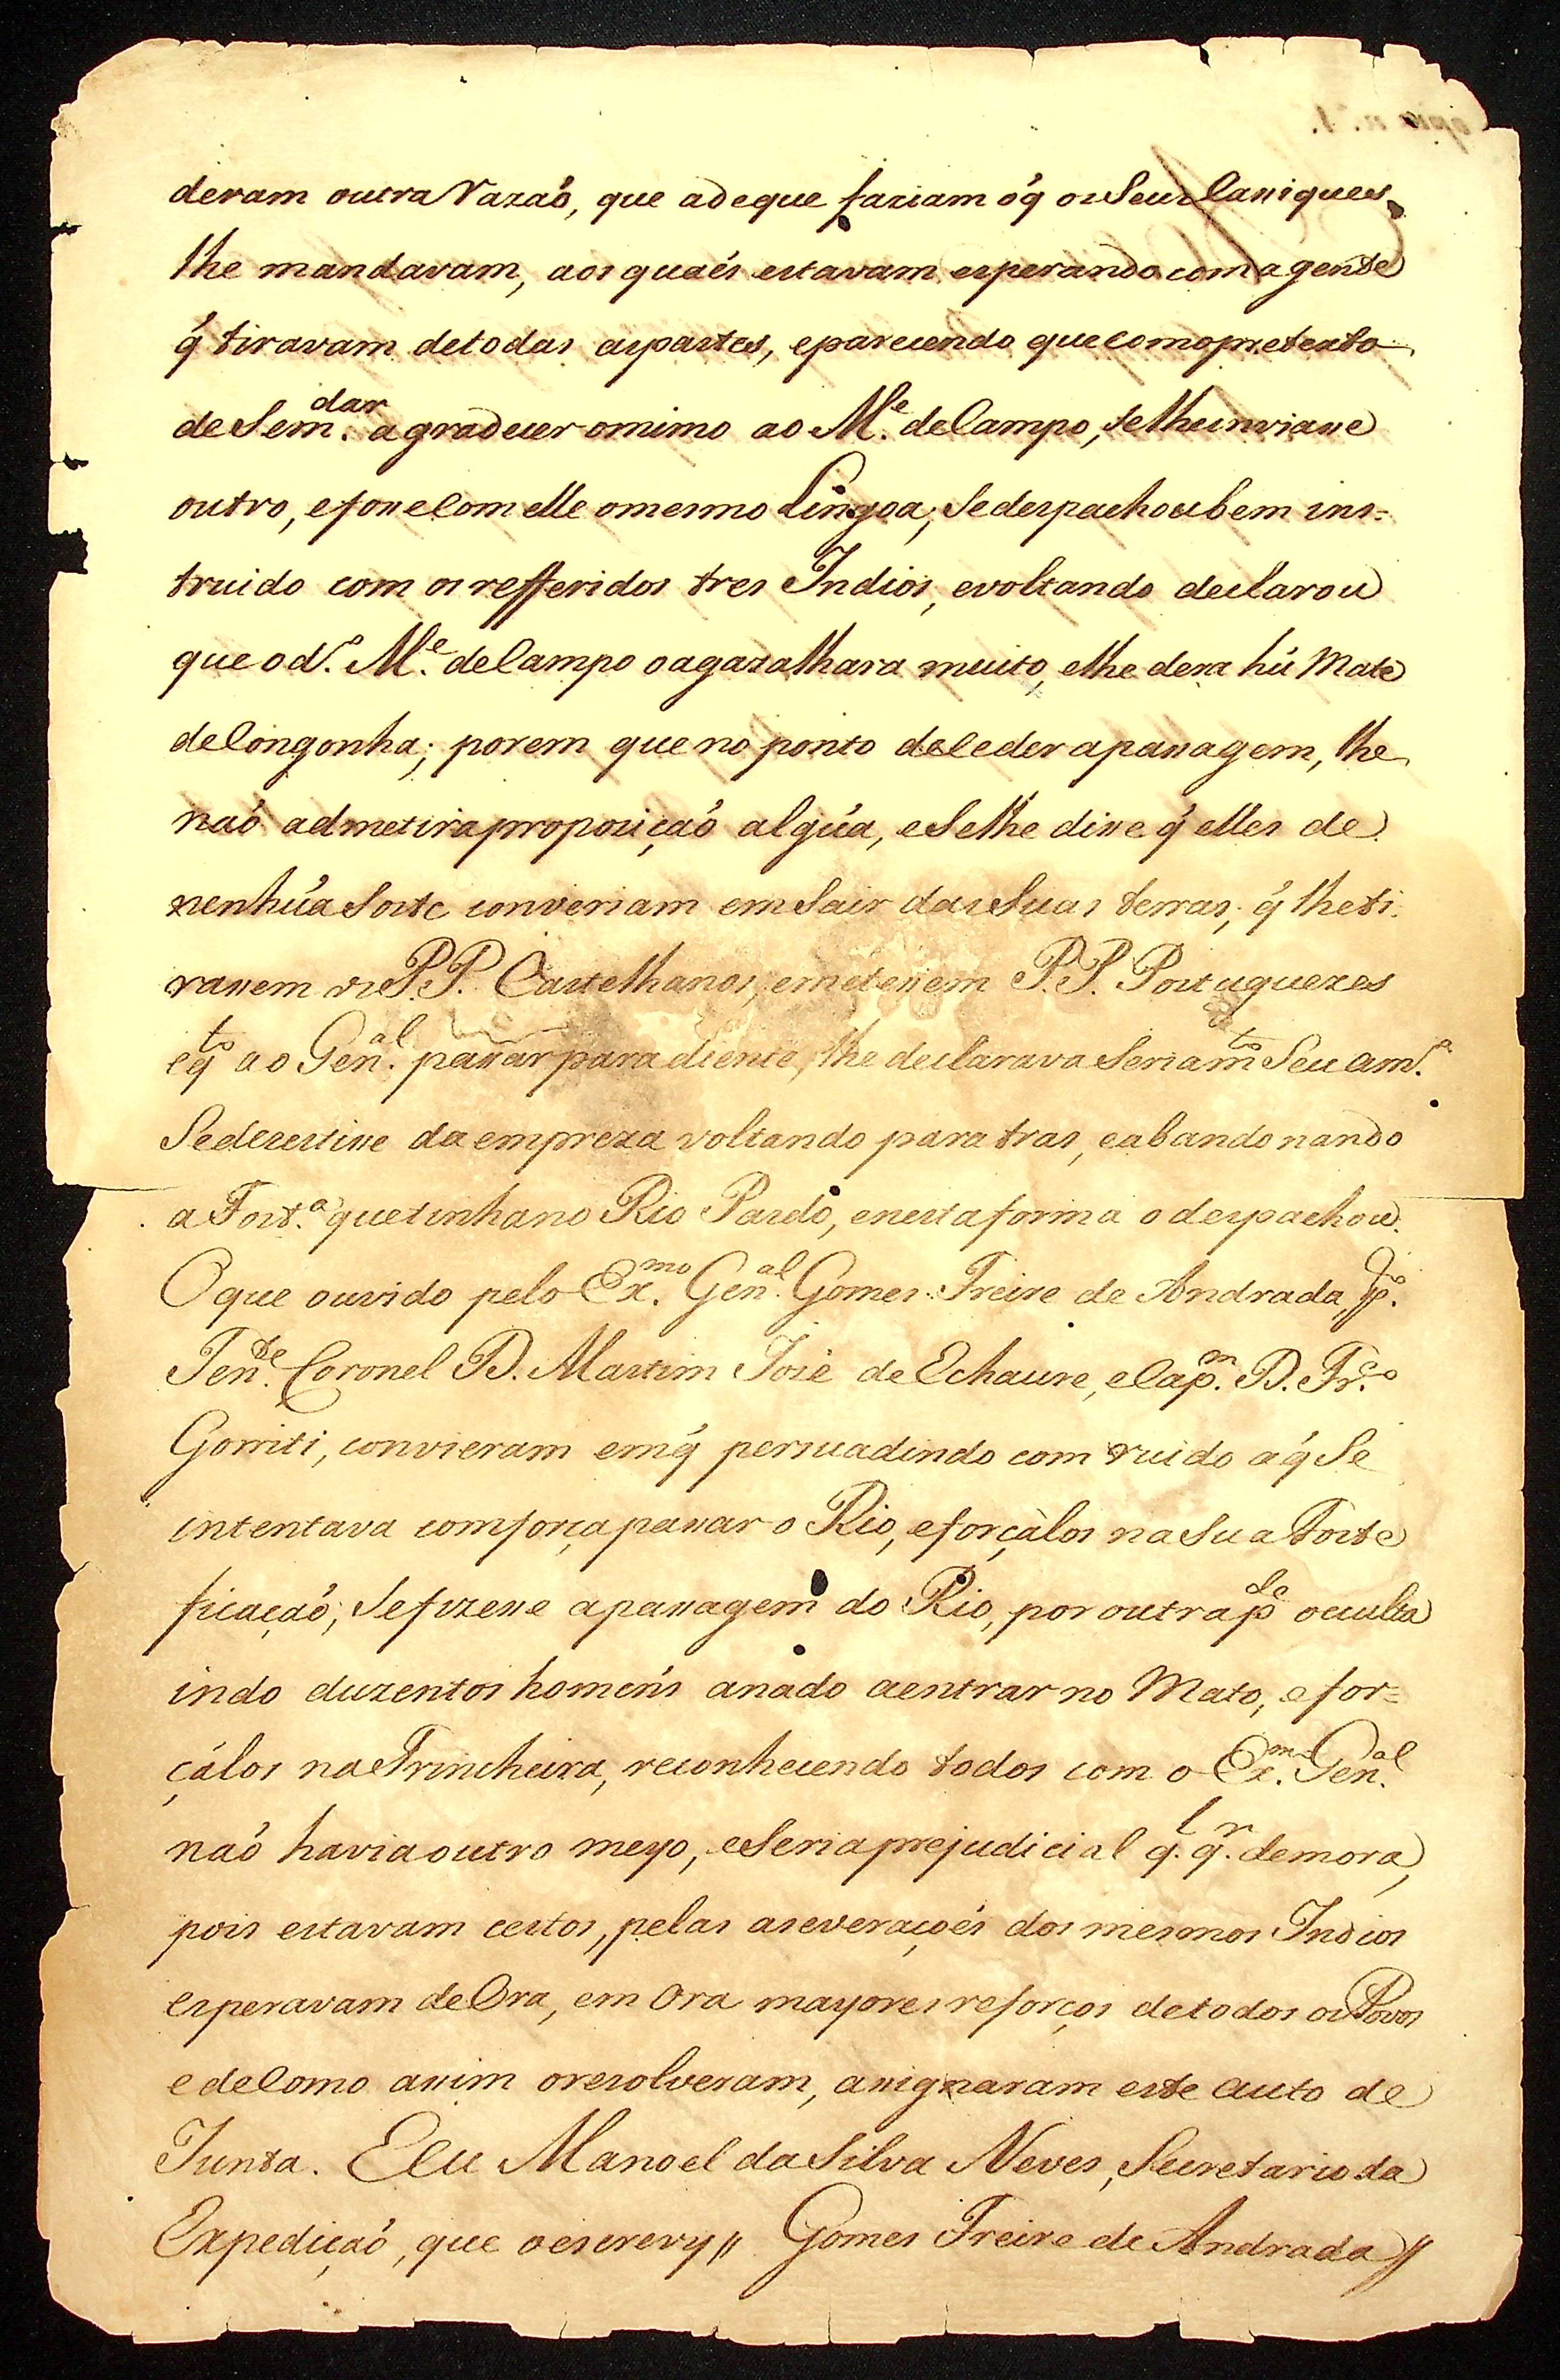 deram outra razaó, que a de que faziam o q̃ os Seus Cassiques
lhe mandavam, aos quaés estavam esperando com a gente
q̃ tiravam de todas as partes, e parecendo que com o pretexto
de Se m.dar agradecer o mimo ao M.e de Campo, se lhe inviasse
outro, e fosse com elle o mesmo Lingoa, Se despachou bem ins=
truido com os refferidos tres Indios, e voltando declarou
que o d.o M.e de Campo o agazalhara muito, e lhe dera hú Mate
de Congonha; porem que no ponto de Ceder a passagem, lhe
naó admetira propozição algúa, e Se lhe disse q̃ elles de
nenhúa Sorte converiam em Sair das Suas terras, q̃ lhe ti
rassem os P.P. Castelhanos, e metessem P.P. Portuguezes
e q.to ao Gen.al passar para diente, lhe declarava Seria m.to Seu am.o
Se dezestisse da empreza voltando para tras, e abandonando
a Fort.a que tinha no Rio Pardo, e nesta forma o despachou.
O que ouvido pelo Ex.mo Gen.al Gomes Freire de Andrada,
Ten.te Coronel D. Martim Jozé de Echaure, e Cap.m D. Fr.co
Gorriti, convieram em q̃ persuadindo com ruido a q̃ Se
intentava com força passar o Rio, e forçálos na Sua Forte
ficaçaó, Se fizesse a passagem do Rio, por outra p.te occulta
indo duzentos homéns a nado a entrar no Mato, e for=
çálos na Trincheira, reconhecendo todos com o Ex.mo Gen.al
naó havia outro meyo, e Seria prejudicial q.l q.r demora,
pois estavam certos, pelas aseveraçoés dos mesmos Indios
esperavam de Ora, em Ora mayores reforços de todos os Povos
e de Como assim o rezolveram, assignaram este auto de
Junta. E eu Manoel da Silva Neves, Secretario da
Expediçaó, que o escrevy // Gomes Freire de Andrada //